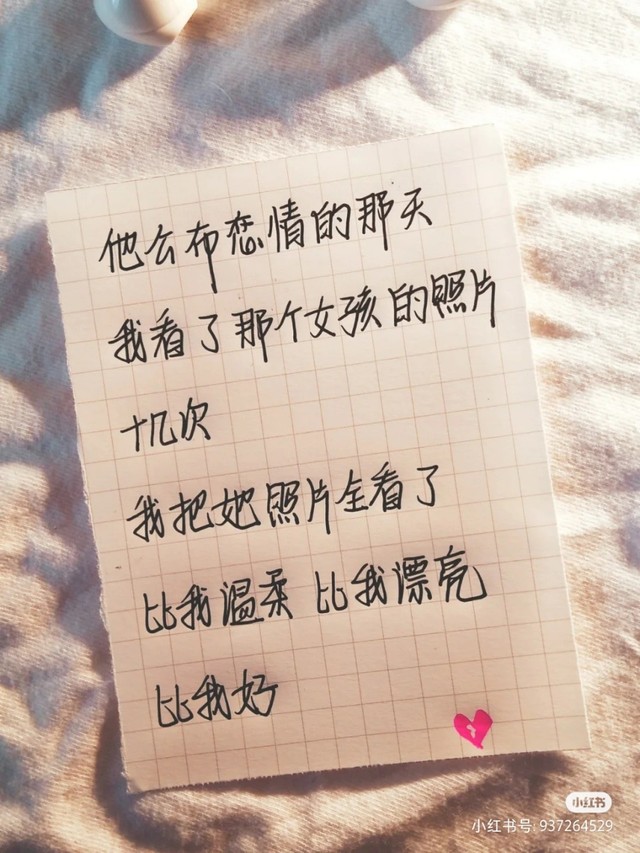 他公布恋情的那天
我看了那个女孩的照片
十几次
我把她照片全看了
比我温柔 比我漂亮
比我好
小红书
小红书号: 937264529